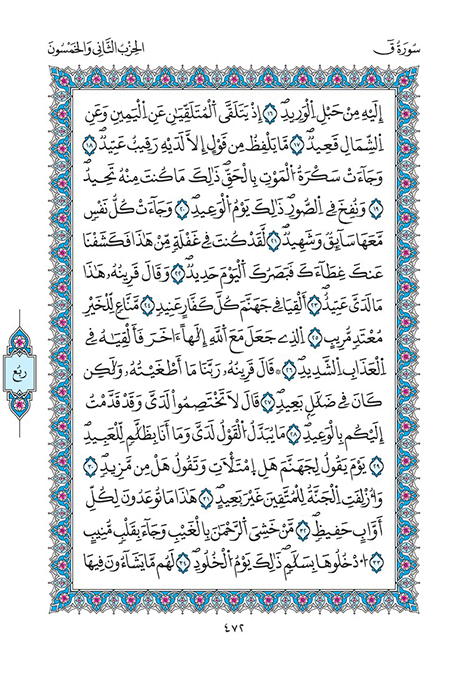 سُورَةُ قٓ
الحِزْبُ الثَّانِي وَالخَمْسُونَ
إِلَيْهِ مِنْ حَبْلِ اِ۬لْوَرِيدِۖ ١٦ إِذْ يَتَلَقَّى اَ۬لْمُتَلَقِّيَٰنِ عَنِ اِ۬لْيَمِينِ وَعَنِ
اِ۬لشِّمَالِ قَعِيدٞۖ ١٧ مَّا يَلْفِظُ مِن قَوْلٍ اِلَّا لَدَيْهِ رَقِيبٌ عَتِيدٞۖ ١٨
وَجَآءَتْ سَكْرَةُ اُ۬لْمَوْتِ بِالْحَقِّۖ ذَٰلِكَ مَا كُنتَ مِنْهُ تَحِيدُۖ
١٩ وَنُفِخَ فِي اِ۬لصُّورِۖ ذَٰلِكَ يَوْمُ اُ۬لْوَعِيدِۖ ٢٠ وَجَآءَتْ كُلُّ نَفْسٖ
مَّعَهَا سَآئِقٞ وَشَهِيدٞۖ ٢١ لَّقَدْ كُنتَ فِي غَفْلَةٖ مِّنْ هَٰذَا فَكَشَفْنَا
عَنكَ غِطَآءَكَ فَبَصَرُكَ اَ۬لْيَوْمَ حَدِيدٞۖ ٢٢ وَقَالَ قَرِينُهُۥ هَٰذَا
مَا لَدَىَّ عَتِيدٌۖ ٢٣ اَلْقِيَا فِي جَهَنَّمَ كُلَّ كَفَّارٍ عَنِيدٖ ٢٤ مَّنَّاعٖ لِّلْخَيْرِ
مُعْتَدٖ مُّرِيبٍۖ ٢٥ اِ۬لذِے جَعَلَ مَعَ اَ۬للَّهِ إِلَٰهاً اٰخَرَ فَأَلْقِيَٰهُ فِي
اِ۬لْعَذَابِ اِ۬لشَّدِيدِۖ ٢٦ ۞ قَالَ قَرِينُهُۥ رَبَّنَا مَآ أَطْغَيْتُهُۥ وَلَٰكِن
كَانَ فِي ضَلَٰلِۢ بَعِيدٖۖ ٢٧ قَالَ لَا تَخْتَصِمُواْ لَدَىَّ وَقَدْ قَدَّمْتُ
إِلَيْكُم بِالْوَعِيدِۖ ٢٨ مَا يُبَدَّلُ اُ۬لْقَوْلُ لَدَىَّ وَمَآ أَنَا بِظَلَّٰمٖ لِّلْعَبِيدِۖ
٢٩ يَوْمَ يَقُولُ لِجَهَنَّمَ هَلِ اِ۪مْتَلَأْتِ وَتَقُولُ هَلْ مِن مَّزِيدٖۖ ٣٠
وَأُزْلِفَتِ اِ۬لْجَنَّةُ لِلْمُتَّقِينَ غَيْرَ بَعِيدٍۖ ٣١ هَٰذَا مَا تُوعَدُونَ لِكُلِّ
أَوَّابٍ حَفِيظٖۖ ٣٢ مَّنْ خَشِيَ اَ۬لرَّحْمَٰنَ بِالْغَيْبِ وَجَآءَ بِقَلْبٖ مُّنِيبٍۖ
٣٣ اُ۟دْخُلُوهَا بِسَلَٰمٖۖ ذَٰلِكَ يَوْمُ اُ۬لْخُلُودِۖ ٣٤ لَهُم مَّا يَشَآءُونَ فِيهَا
ربع
٤٧٢